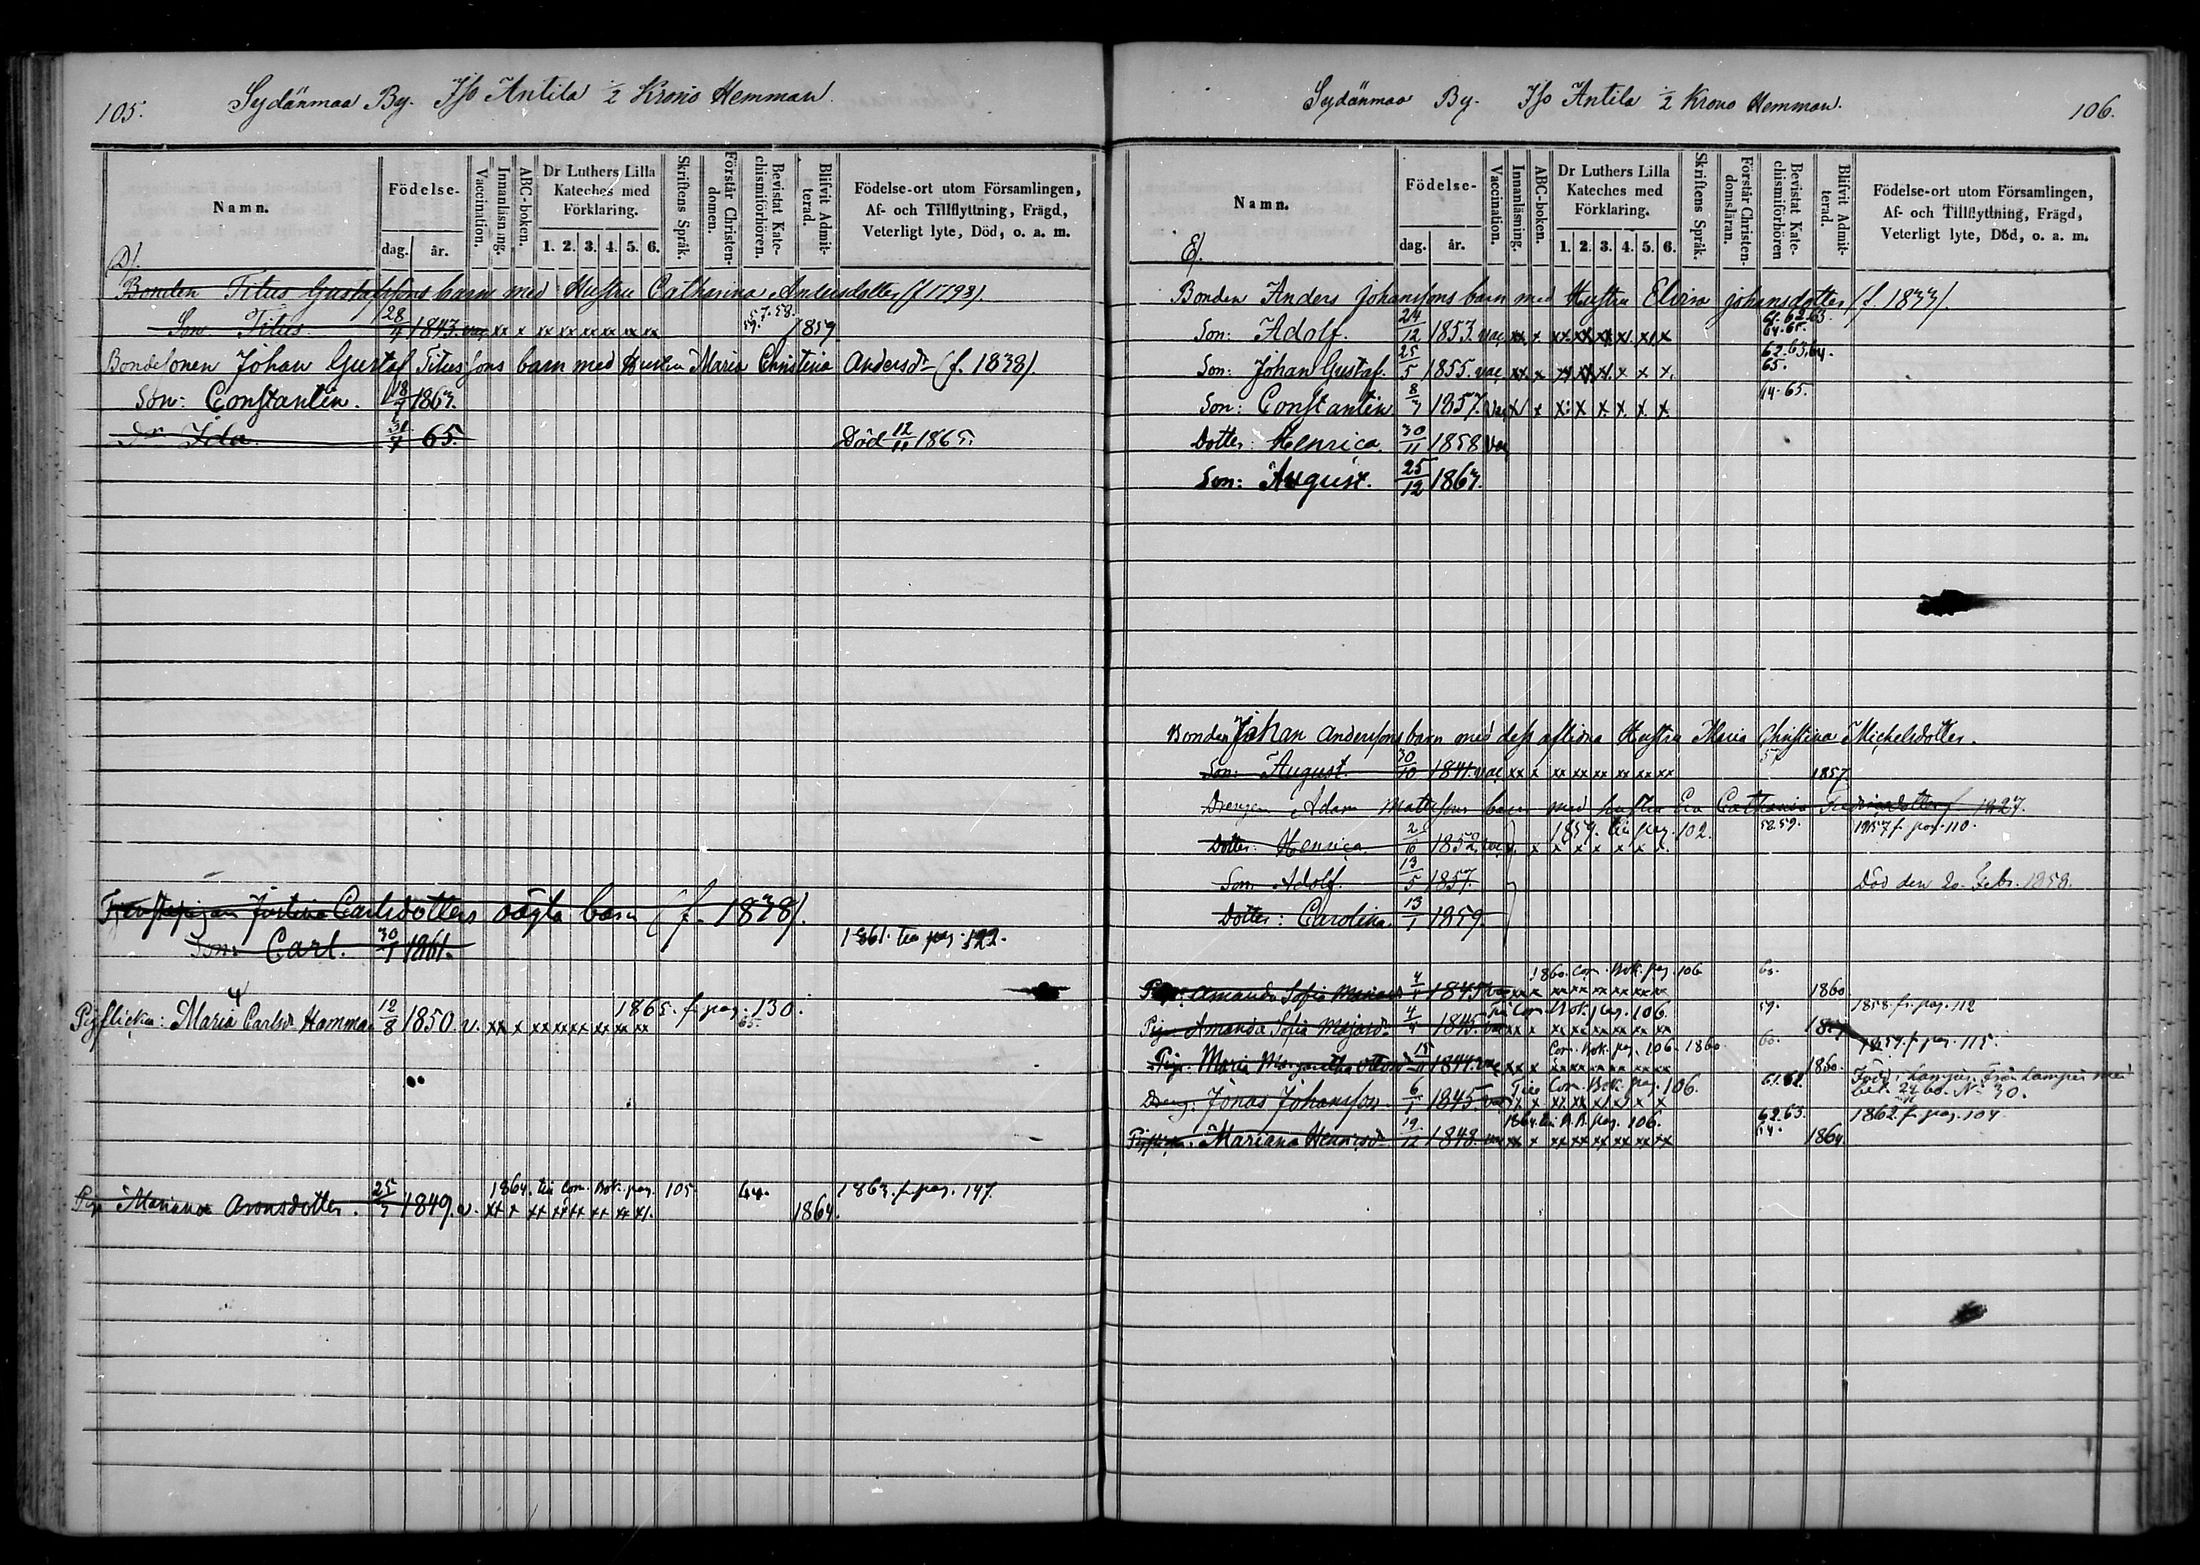 105. Sydänmaa By. Iso Antila 1/2 Krono Hemman.
Namn. Födelse- dag. år. Vaccination. Innanläsning. ABC-boken. Dr Luthers Lilla Kateches med Förklaring. 1. 2. 3. 4. 5. 6. Skriftens Språk. Förstår Christendomen. Bevistat Katechismiförhören. Blifvit Admitterad. Födelse-ort utom Församlingen, Af- och Tillflyttning, Frägd, Veterligt lyte, Död, o. a. m.
D/.
Bonden Titus Gustafssons barn med Hustru Catharina Andersdotter (f 1798).
Son Titus. 28/4 1843. vac xx x xx xx xx xx xx xx 57.58. 59. 1859
Bondesonen Johan Gustaf Titussons barn med Hustru Maria Christina Andersdr (f. 1838).
Son: Constantin. 18/7 1863.
Dr Ida. 31/7 65. Död 12/11 1865.
Tjenstepigan Justina Carlsdotters oägta barn (f. 1838).
Son: Carl. 30/1 1861. 1861. till pag. 122.
1865. f. pag. 130.
Pigflicka: Maria Carlsdr Hamma 12/8 1850. v. xx x xx xx xx xx xx xx 65.
1864. till Com. Bok. pag. 105 64. 1863. f. pag. 147.
Piga Mariana Aronsdotter. 25/7 1849. v. xx x xx xx xx xx xx xx. 1864.
Sydänmaa By. Iso Antila 1/2 Krono Hemman. 106.
Namn. Födelse- dag. år. Vaccination. Innanläsning. ABC-boken. Dr Luthers Lilla Kateches med Förklaring. 1. 2. 3. 4. 5. 6. Skriftens Språk. Förstår Christendomsläran. Bevistat Katechismiförhören Blifvit Admitterad. Födelse-ort utom Församlingen, Af- och Tillflyttning, Frägd, Veterligt lyte, Död, o. a. m.
E/.
Bonden Anders Johanssons barn med Hustru Elvira Johansdotter (f. 1833).
Son: Adolf. 24/12 1853. vac xx x xx xx xx x x x 61. 62. 63. 64. 65.
Son: Johan Gustaf. 25/5 1855. vac xx x x x x x x x. 62. 63. 64. 65.
Son: Constantin 8/3 1857. vac x x x x x x x 64. 65.
Dotter: Henrica. 30/11 1858 vac
Son: August. 25/12 1863.
Bonden Johan Anderssons barn med dess aflidna Hustru Maria Christina Michelsdotter.
Son: August. 30/10 1841. vac xx x xx xx xx xx xx xx 57. 1857.
Drengen Adam Mattssons barn med hustru Eva Catharina Fredricsdotter f 1827.
1859. till pag. 102. 58. 59. 1857 f. pag. 110.
Dotter: Henrica. 2/6 1852. vac x. x x x x x x x.
Son Adolf. 13/5 1857. Död den 20 Febr. 1858.
Dotter: Carolina. 13/1 1859.
1860. Com. Bok. pag. 106 60.
Piga: Amanda Sofia 4/4 1845 vac xx x xx xx xx xx xx xx 1860
till Com. Bok. pag. 106. 59. 1858 f. pag. 112
Piga Amanda Sofia Majasdr 4/4 1845. vac xx x xx xx xx xx xx xx
Com. Bok. pag. 106. 1860. 60. 1859 f. pag. 115.
Piga: Maria Margaretha 15/11 1844. vac xx x xx xx xx xx xx xx 1860.
Till Com. Bok. pag. 106. 61. 62. Född i Lampis. Från Lampis med
Dreng: Jonas Johansson. 6/1 1845. vac x x x x x x x x bet. 24/11 60. No 30.
1864 till C. B. pag. 106. 62. 63. 64. 1862. f. pag. 104.
Pigflicka: Mariana Henricsdr 19/12 1848. vac xx x xx xx xx xx xx xx 1864